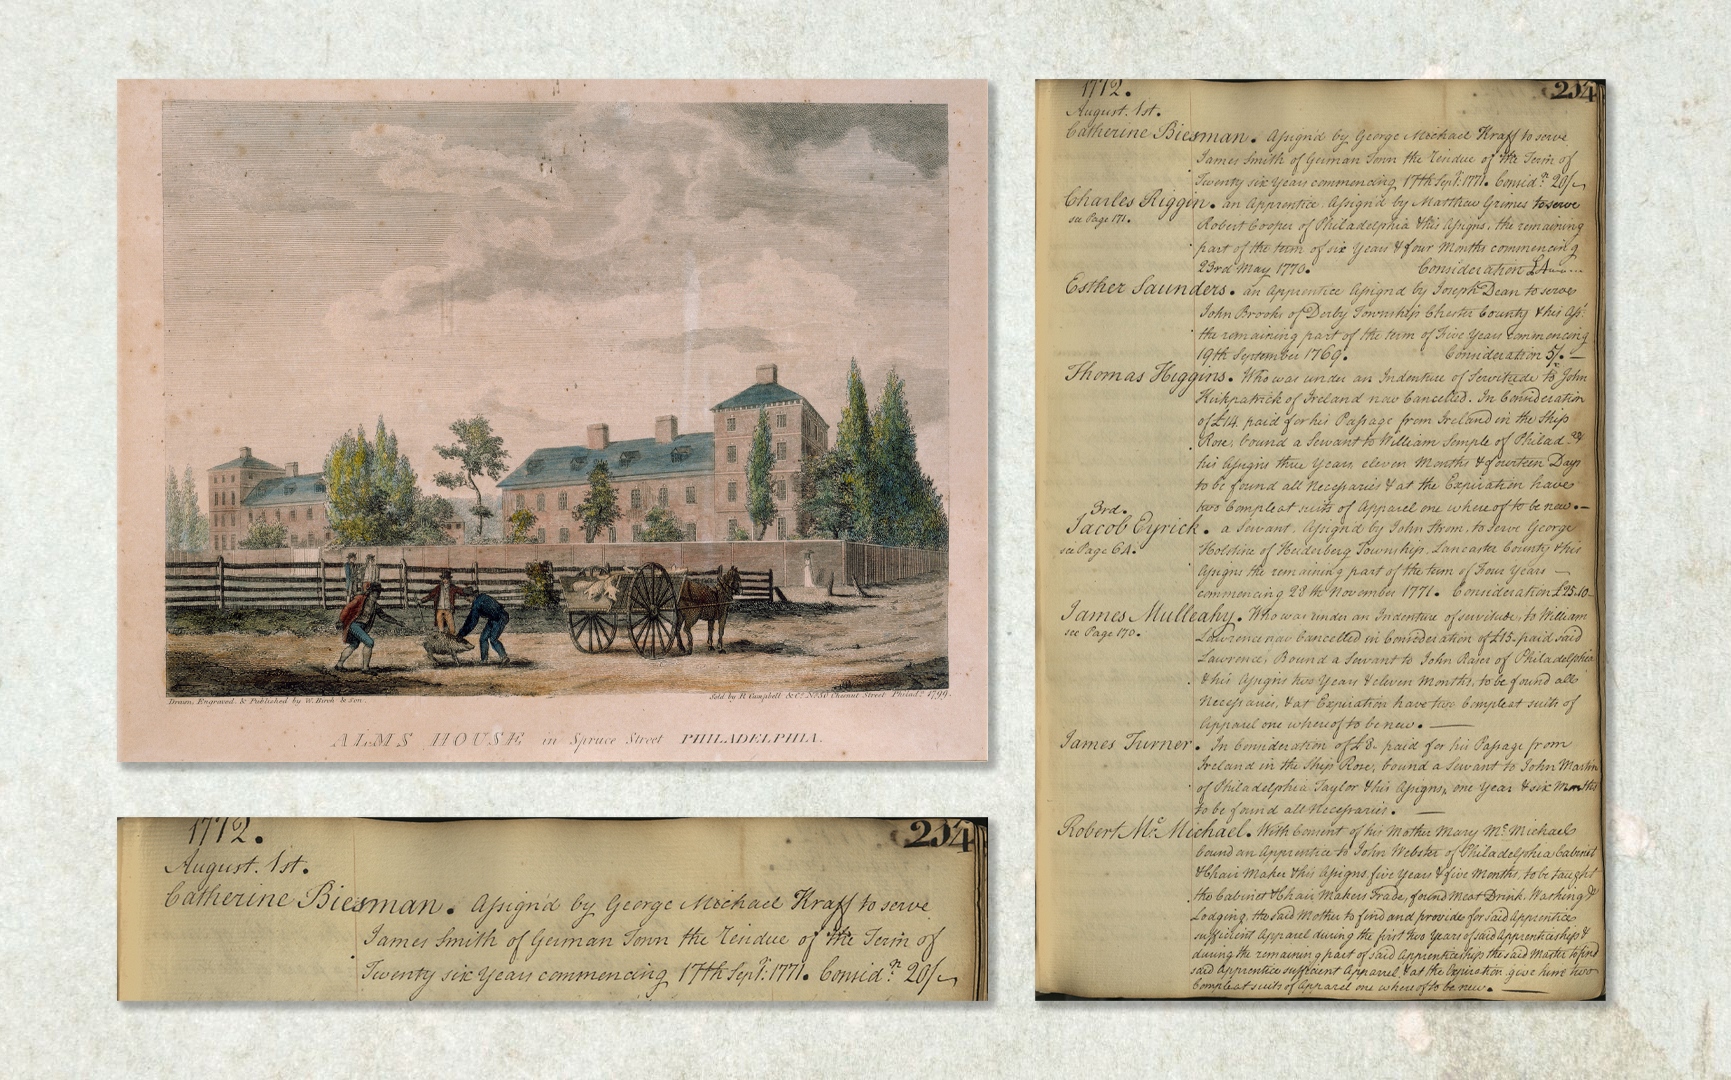 Drawn, Engraved, & Published by W. Birch & Son.
Sold by R. Campbell & Co. No. 30 Chesnut Street Philada. 1799.
ALMS HOUSE in Spruce Street PHILADELPHIA.
1772.
204
August. 1st.
Catherine Biesman. Assign'd by George Michael Kraff to serve
James Smith of German Town the Residue of the Term of
Twenty six Years commencing 17th Sept. 1771. Considn. 20/-
1772.
204
August. 1st.
Catherine Biesman. Assign'd by George Michael Kraff to serve
James Smith of German Town the Residue of the Term of
Twenty six Years commencing 17th Sept. 1771. Considn. 20/-
Charles Riggin. an Apprentice Assign'd by Matthew Grimes to serve
see Page 171.
Robert Cooper of Philadelphia & his Assigns, the remaining
part of the term of six Years & four Months commencing
23rd May 1770. Consideration £4
Esther Saunders. an Apprentice Assign'd by Joseph Dean to serve
John Brooks of Derby Township Chester County & his Ass.
the remaining part of the term of Five Years commencing
19th September 1769. Consideration 5/. —
Thomas Higgins. Who was under an Indenture of Servitude to John
Kirkpatrick of Ireland now Cancelled. In Consideration
of £14. paid for his Passage from Ireland in the Ship
Rose, bound a Servant to William Semple of Philada. &
his Assigns three Years, eleven Months & fourteen Days
to be found all Necessaries & at the Expiration have
two Compleat suits of Apparel one whereof to be new. —
3rd.
Jacob Eyrick. a Servant, Assign'd by John Strom, to serve George
see Page 64.
Holstine of Heiderberg Township, Lancaster County & his
Assigns the remaining part of the term of Four Years —
commencing 28th November 1771. Consideration £25.10
James Mulleahy. Who was under an Indenture of servitude, to William
see Page 170.
Lawrence now Cancelled in Consideration of £15. paid said
Lawrence, Bound a Servant to John Rajer of Philadelphia
& his Assigns two Years & eleven Months, to be found all
Necessaries, & at Expiration have two Compleat suits of
Apparel one whereof to be new. —
James Turner. In Consideration of £8. paid for his Passage from
Ireland in the Ship Rose, bound a Servant to John Martin
of Philadelphia Taylor & his Assigns, one Year & six Months
to be found all Necessaries. —
Robert McMichael. With Consent of his Mother Mary McMichael
bound an Apprentice to John Webster of Philadelphia Cabinet
& Chair Maker & his Assigns, five Years & five Months, to be taught
the Cabinet & Chair Makers Trade, found Meat Drink, Washing &
Lodging, the said Mother to find and provide for said Apprentice
sufficient Apparel during the first two Years of said Apprenticeship &
during the remaining part of said Apprenticeship the said Master to find
said Apprentice sufficient Apparel & at the Expiration give him two
Compleat suits of Apparel one whereof to be new. —